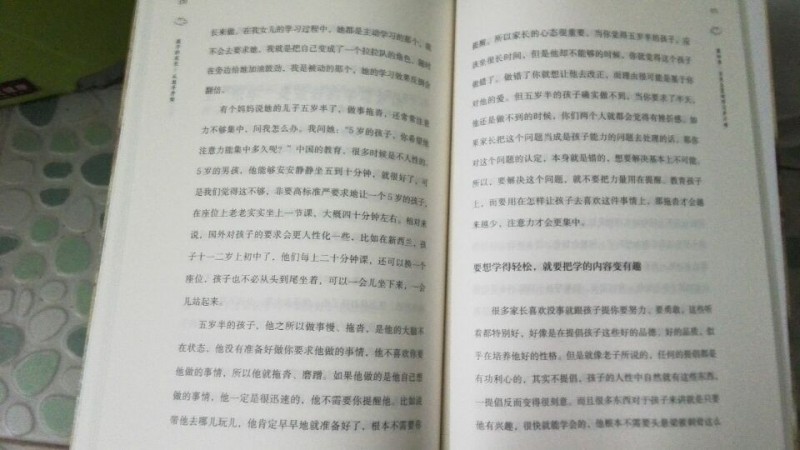 长来做。在我女儿的学习过程中，她都是主动学习的那个，我
不会去要求她，我就是把自己变成了一个拉拉队的角色，随时
在旁边给她加油鼓劲，我是被动的那个，她的学习效果反倒会
翻倍。
有个妈妈说她的儿子五岁半了，做事拖沓，还常常注意
力不够集中，问我怎么办。我问她：“5岁的孩子，你希望他
注意力能集中多久呢？”中国的教育，很多时候是不人性的，
5岁的男孩，他能够安安静静坐五到十分钟，就很好了，可
是我们觉得这不够，非要高标准严要求地让一个5岁的孩子，
在座位上老老实实坐上一节课，大概四十分钟左右，相对来
说，国外对孩子的要求会更人性化一些，比如在新西兰，孩
子十一二岁上初中了，他们每上二十分钟课，还可以换一个
座位，孩子也不必从头到尾坐着，可以一会儿坐下来，一会
儿站起来。
五岁半的孩子，他之所以做事慢、拖沓，是他的大脑不
在状态，他没有准备好做你要求他做的事情，他不喜欢你要
他做的事情，所以他就拖沓、磨蹭。如果他做的是他自己想
做的事情，他一定是很迅速的，他不需要你提醒他。比如说
带他去哪儿玩儿，他肯定早早地就准备好了，根本不需要你
提醒。所以家长的心态很重要，当你觉得五岁半的孩子，应
该来很长时间，但是他却不能够的时候，你就觉得这个孩子
做错了，做错了你就想让他去改正，而理由很可能是基于你
对他的爱。但五岁半的孩子确实做不到，当你要求了半天，
他还是做不到的时候，你们两个人就都会觉得有挫折感。如
果家长把这个问题当成是孩子能力的问题去处理的话，那你
对这个问题的认定，本身就是错的，想要解决基本上不可能。
所以，要解决这个问题，就不要把力量用在提醒、教育孩子
上，而要用在怎样让孩子去喜欢这件事情上，那拖沓才会越
来越少，注意力才会更集中。
要想学得轻松，就要把学的内容变有趣
很多家长喜欢没事就跟孩子提你要努力、要勇敢，这些听
着都特别好，好像是在提倡孩子这些好的品德、好的品质，似
乎在培养他好的性格。但是就像老子所说的，任何的提倡都是
有功利心的，其实不提倡，孩子的人性中自然就有这些东西，
一提倡反而变得很刻意。而且很多东西对于孩子来讲就是只要
他有兴趣，很快就能学会的，他根本不需要头悬梁锥刺骨这么